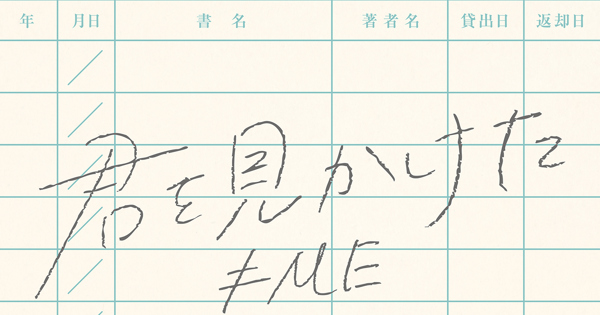 年 月日 書名 著者名 貸出日 返却日
君を見かけた
≠ME